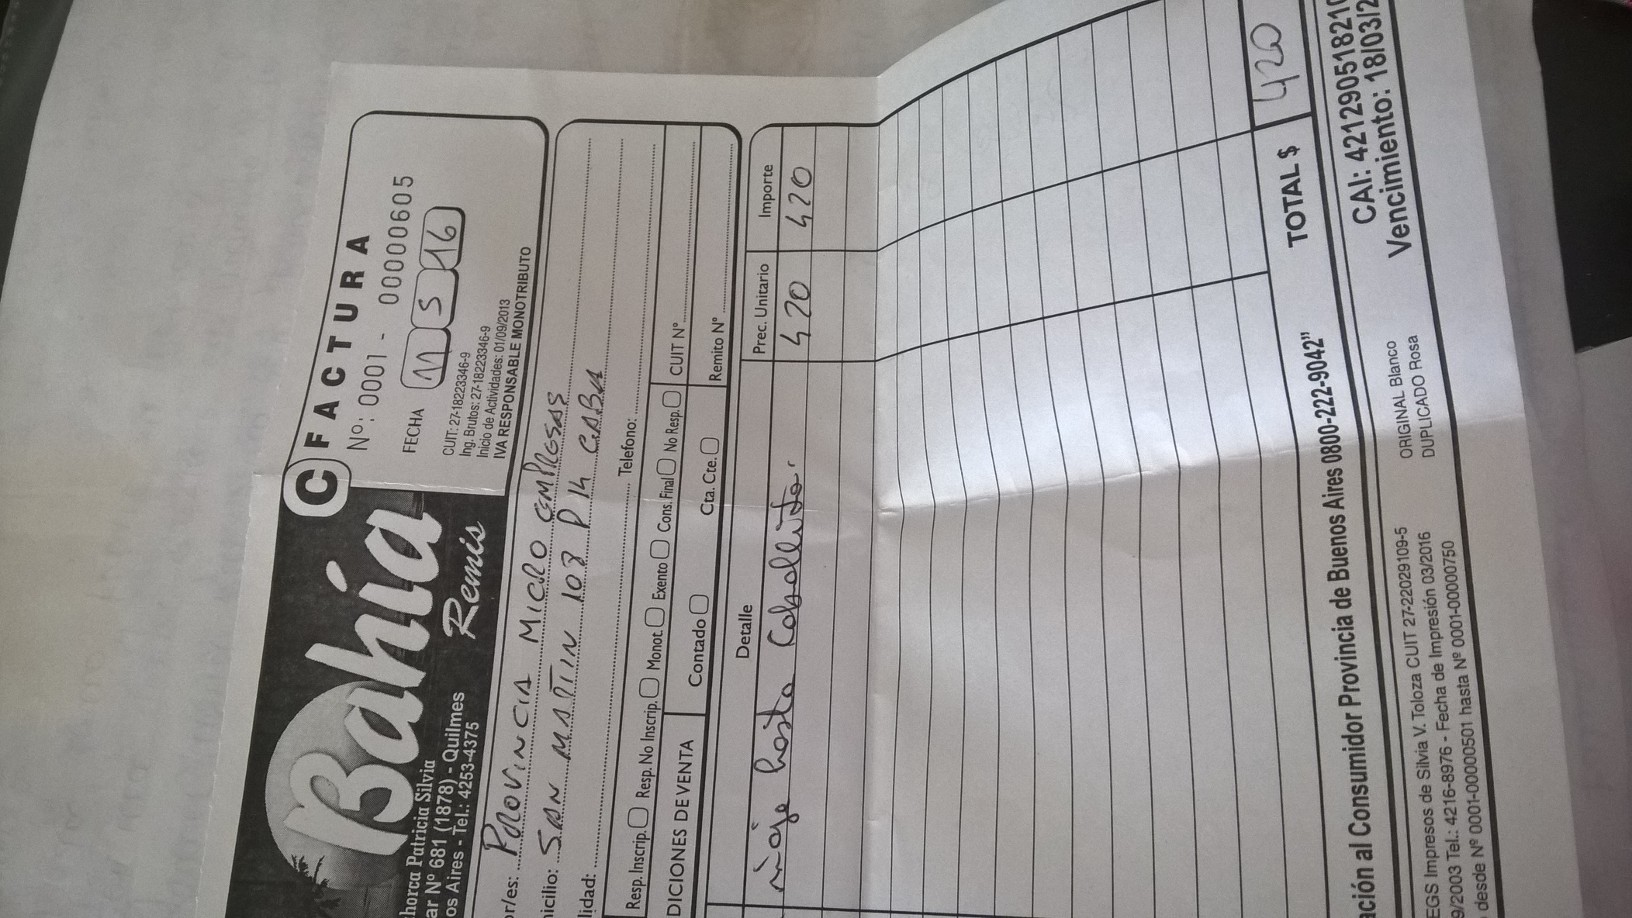 Bahía
Remis
horca Patricia Silvia
ar Nº 681 (1878) - Quilmes
os Aires - Tel.: 4253-4375
C
FACTURA
Nº: 0001 - 00000605
FECHA 11 5 16
CUIT: 27-18223346-9
Ing. Brutos: 27-18223346-9
Inicio de Actividades: 01/09/2013
IVA RESPONSABLE MONOTRIBUTO
or/es: PROVINCIA MICRO EMPRESAS
icilio: SAN MARTIN 108 P 14 CABA
lidad: Telefono:
Resp. Inscrip. Resp. No Inscrip. Monot. Exento Cons. Final No Resp. CUIT Nº
DICIONES DE VENTA Contado Cta. Cte. Remito Nº
Detalle Prec. Unitario Importe
viaje hasta Caballito. 420 420
TOTAL $ 420
ación al Consumidor Provincia de Buenos Aires 0800-222-9042"
EGS Impresos de Silvia V. Toloza CUIT 27-22029109-5
9/2003 Tel.: 4216-8976 - Fecha de Impresión 03/2016
desde Nº 0001-00000501 hasta Nº 0001-00000750
ORIGINAL Blanco
DUPLICADO Rosa
CAI: 421290518210
Vencimiento: 18/03/2